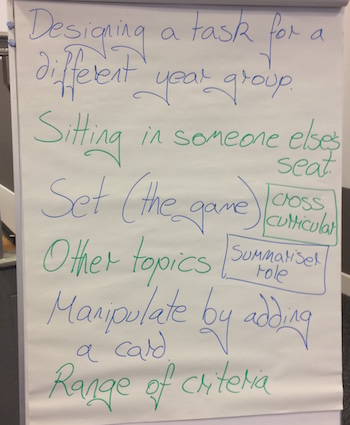 Designing a task for a
different year group.
Sitting in someone else's
seat.
Set (the game)
cross
curricular
Other topics
Summariser
role
Manipulate by adding
a card.
Range of criteria